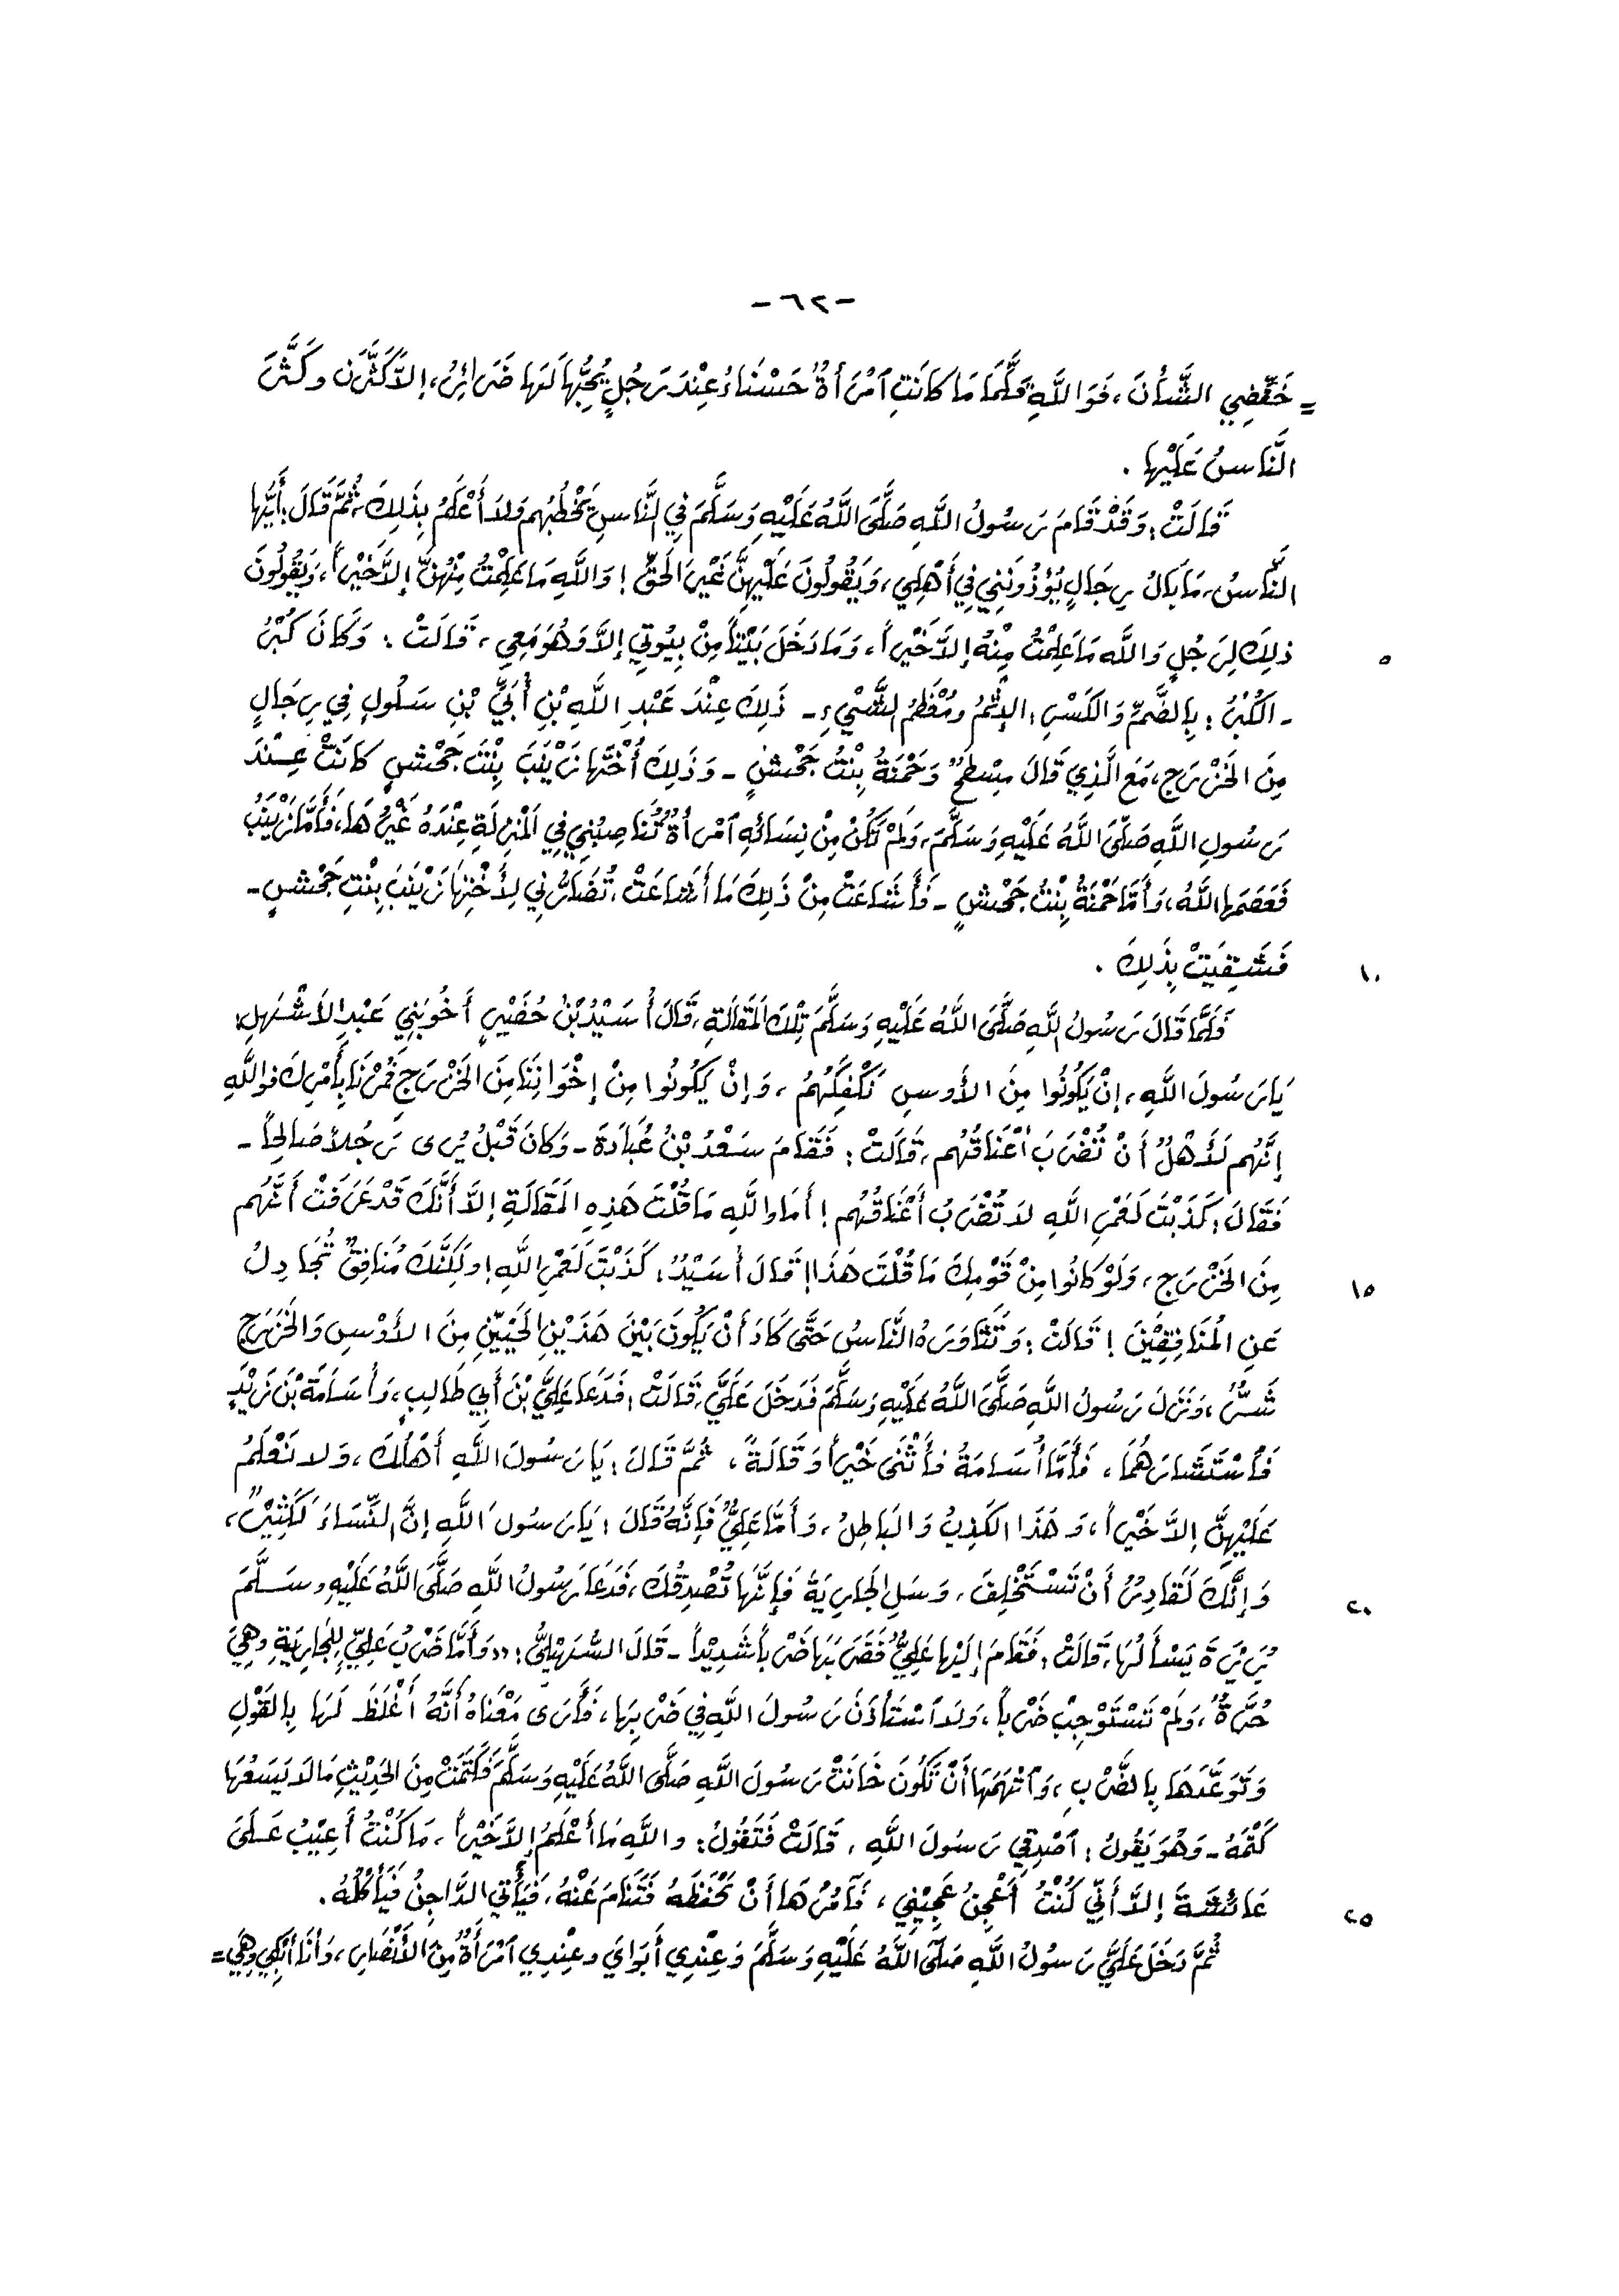 -٦٢-
= خَفِّضِي الشَّأْنَ، فَوَاللَّهِ قَلَّمَا مَا كَانَتِ ٱمْرَأَةٌ حَسْنَاءُ عِنْدَ رَجُلٍ يُحِبُّهَا لَهَا ضَرَائِرُ، إِلاَّ كَثَّرْنَ وكَثَّرَ
النَّاسُ عَلَيْهَا .
قَالَتْ: وَقَدْ قَامَ رَسُولُ اللَّهِ صَلَّى اللَّهُ عَلَيْهِ وَسَلَّمَ فِي النَّاسِ يَخْطُبُهم وَلاَ أَعْلَمُ بِذَلِكَ، ثُمَّ قَالَ: أَيُّهَا
النَّاسُ، مَا بَالُ رِجَالٍ يُؤْذُونَنِي فِي أَهْلِي، وَيَقُولُونَ عَلَيْهِنَّ غَيْرَ الحَقِّ! وَاللَّهِ مَا عَلِمْتُ مِنْهُنَّ إِلاَّ خَيْراً، وَيَقُولُونَ
ذلِكَ لِرَجُلٍ وَاللَّه مَا عَلِمْتُ مِنْهُ إِلاَّ خَيْراً، وَمَا دَخَلَ بَيْتاً مِنْ بِيُوتِي إِلاَّ وَهُوَ مَعِي، قَالَتْ: وَكَانَ كُبْرُ
٥
- الكُبْرُ: بِالضَّمِّ وَالكَسْرِ: الإِثْمُ ومُعْظَمُ الشَّيْءِ - ذَلِكَ عِنْدَ عَبْدِ اللَّهِ بْنِ أُبَيِّ بْنِ سَلُولٍ فِي رِجَالٍ
مِنَ الخَزْرَجِ، مَعَ الَّذِي قَالَ مِسْطَحٌ وَحَمْنَةُ بِنْتُ جَحْشٍ - وَذَلِكَ أُخْتَهَا زَيْنَبَ بِنْتَ جَحْشٍ كَانَتْ عِنْدَ
رَسُولِ اللَّهِ صَلَّى اللَّهُ عَلَيْهِ وَسَلَّمَ، وَلَمْ تَكُنْ مِنْ نِسَائِهِ ٱمْرَأَةٌ تُنَاصِبُنِي فِي المَنْزِلَةِ عِنْدَهُ غَيْرُهَا، فَأَمَّا زَيْنَبُ
فَعَصَمَهَا اللَّهُ، وَأَمَّا حَمْنَةُ بِنْتُ جَحْشٍ - فَأَشَاعَتْ مِنْ ذَلِكَ مَا أَشَاعَتْ، تُضَارُّنِي لِأُخْتِهَا زَيْنَبَ بِنْتِ جَحْشٍ -
فَشَقِيَتْ بِذَلِكَ .
١٠
فَلَمَّا قَالَ رَسُولُ اللَّهِ صَلَّى اللَّهُ عَلَيْهِ وَسَلَّمَ تِلْكَ المَقَالَةِ، قَالَ أُسَيْدُ بْنُ حُضَيْرٍ أَخُو بَنِي عَبْدِ الأَشْهَلِ:
يَا رَسُولَ اللَّهِ، إِنْ يَكُونُوا مِنَ الأَوسِ نَكْفِكَهُمُ، وَإِنْ يَكُونُوا مِنْ إِخْوَانِنَا مِنَ الخَزْرَجِ فَمُرْنَا بِأَمْرِكَ فوَاللَّهِ
إِنَّهُم لَأَهْلٌ أَنْ تُضْرَبَ أَعْنَاقُهُم، قَالَتْ: فَقَامَ سَعْدُ بْنُ عُبَادَةَ - وَكَانَ قَبْلُ يُرَى رَجُلاً صَالِحاً -
فَقَالَ: كَذَبْتَ لَعَمْرِ اللَّهِ لاَ تُضْرَبُ أَعْنَاقُهُم! أَمَا وَاللَّهِ مَا قُلْتَ هَذِهِ المَقَالَةِ إِلاَّ أَنَّكَ قَدْ عَرَفْتَ أَنَّهُم
مِنَ الخَزْرَجِ، وَلَوْ كَانُوا مِنْ قَوْمِكَ مَا قُلْتَ هَذَا! قَالَ أُسَيْدٌ: كَذَبْتَ لَعَمْرِ اللَّهِ! ولَكِنَّكَ مُنَافِقٌ تُجَادِلُ
١٥
عَنِ الْمُنَافِقِيْنَ! قَالَتْ: وَتَثَاوَرَهُ النَّاسُ حَتَّى كَادَ أَنْ يَكُونَ بَيْنَ هَذَيْنِ الحَيَّيْنِ مِنَ الأَوْسِ وَالخَزْرَجِ
شَرٌّ، وَنَزَلَ رَسُولُ اللَّهِ صَلَّى اللَّهُ عَلَيْهِ وَسَلَّمَ فَدَخَلَ عَلَيَّ، قَالَتْ: فَدَعَا عَلِيَّ بْنَ أَبِي طَالِبٍ، وَأُسَامَةَ بْنَ زَيْدٍ
فَٱسْتَشَارَهُمَا، فَأَمَّا أُسَامَةُ فَأَثْنَى خَيْراً وَقَالَهُ، ثُمَّ قَالَ: يَا رَسُولَ اللَّهِ أَهْلُكَ، وَلا نَعْلَمُ
عَلَيْهِنَّ إِلاَّ خَيْراً، وَهَذَا الكَذِبُ وَالبَاطِلُ، وَأَمَّا عَلِيٌّ فَإِنَّهُ قَالَ: يَا رَسُولَ اللَّهِ إِنَّ النِّسَاءَ لَكَثِيْرٌ،
وَإِنَّكَ لَقَادِرٌ أَنْ تَسْتَخْلِفَ، وَسَلِ الجَارِيَةَ فَإِنَّهَا تُصْدِقُكَ، فَدَعَا رَسُولُ اللَّهِ صَلَّى اللَّهُ عَلَيْهِ وسَلَّمَ
٢٠
بُرَيْرَةَ يَسْأَلُهَا، قَالَتْ: فَقَامَ إِلَيْهَا عَلِيٌّ فَضَرَبَهَا ضَرْباً شَدِيْداً - قَالَ السُّهَيْلِيُّ: «وَأَمَّا ضَرْبُ عَلِيٍّ لِلْجَارِيَةِ وهِيَ
حُرَّةٌ، وَلَمْ تَسْتَوْجِبْ ضَرْباً، وَلاَ ٱسْتَأْذَنَ رَسُولَ اللَّهِ فِي ضَرْبِهَا، فَأَرَى مَعْنَاهُ أَنَّهُ أَغْلَظَ لَهَا بِالقَوْلِ
وَتَوَعَّدَهَا بِالضَّرْبِ، وَٱتْهَمَهَا أَنْ تَكُونَ خَانَتْ رَسُولَ اللَّهِ صَلَّى اللَّهُ عَلَيْهِ وَسَلَّمَ فَكَتَمَتْ مِنَ الحَدِيْثِ مَا لاَ يَسَعُهَا
كَتْمَهُ - وَهُوَ يَقُولُ: ٱصْدِقِي رَسُولَ اللَّهِ، قَالَتْ فَتَقُولُ: واللَّهِ مَا أَعْلَمُ إِلاَّ خَيْراً، مَا كُنْتُ أَعِيْبُ عَلَى
عَائِشَةَ إِلاَّ أَنِّي كُنْتُ أَعْجِنُ عَجِيْنِي، فَآمُرُهَا أَنْ تَحْفَظَهُ فَتَنَامَ عَنْهُ، فَيَأْتِي الدَّاجِنُ فَيَأْكُلُهُ.
٢٥
ثُمَّ دَخَلَ عَلَيَّ رَسُولُ اللَّهِ صَلَّى اللَّهُ عَلَيْهِ وَسَلَّمَ وَعِنْدِي أَبَوَايَ وعِنْدِي ٱمْرَأَةٌ مِنَ الأَنْصَارِ، وَأَنَا أَبْكِي وهِيَ =